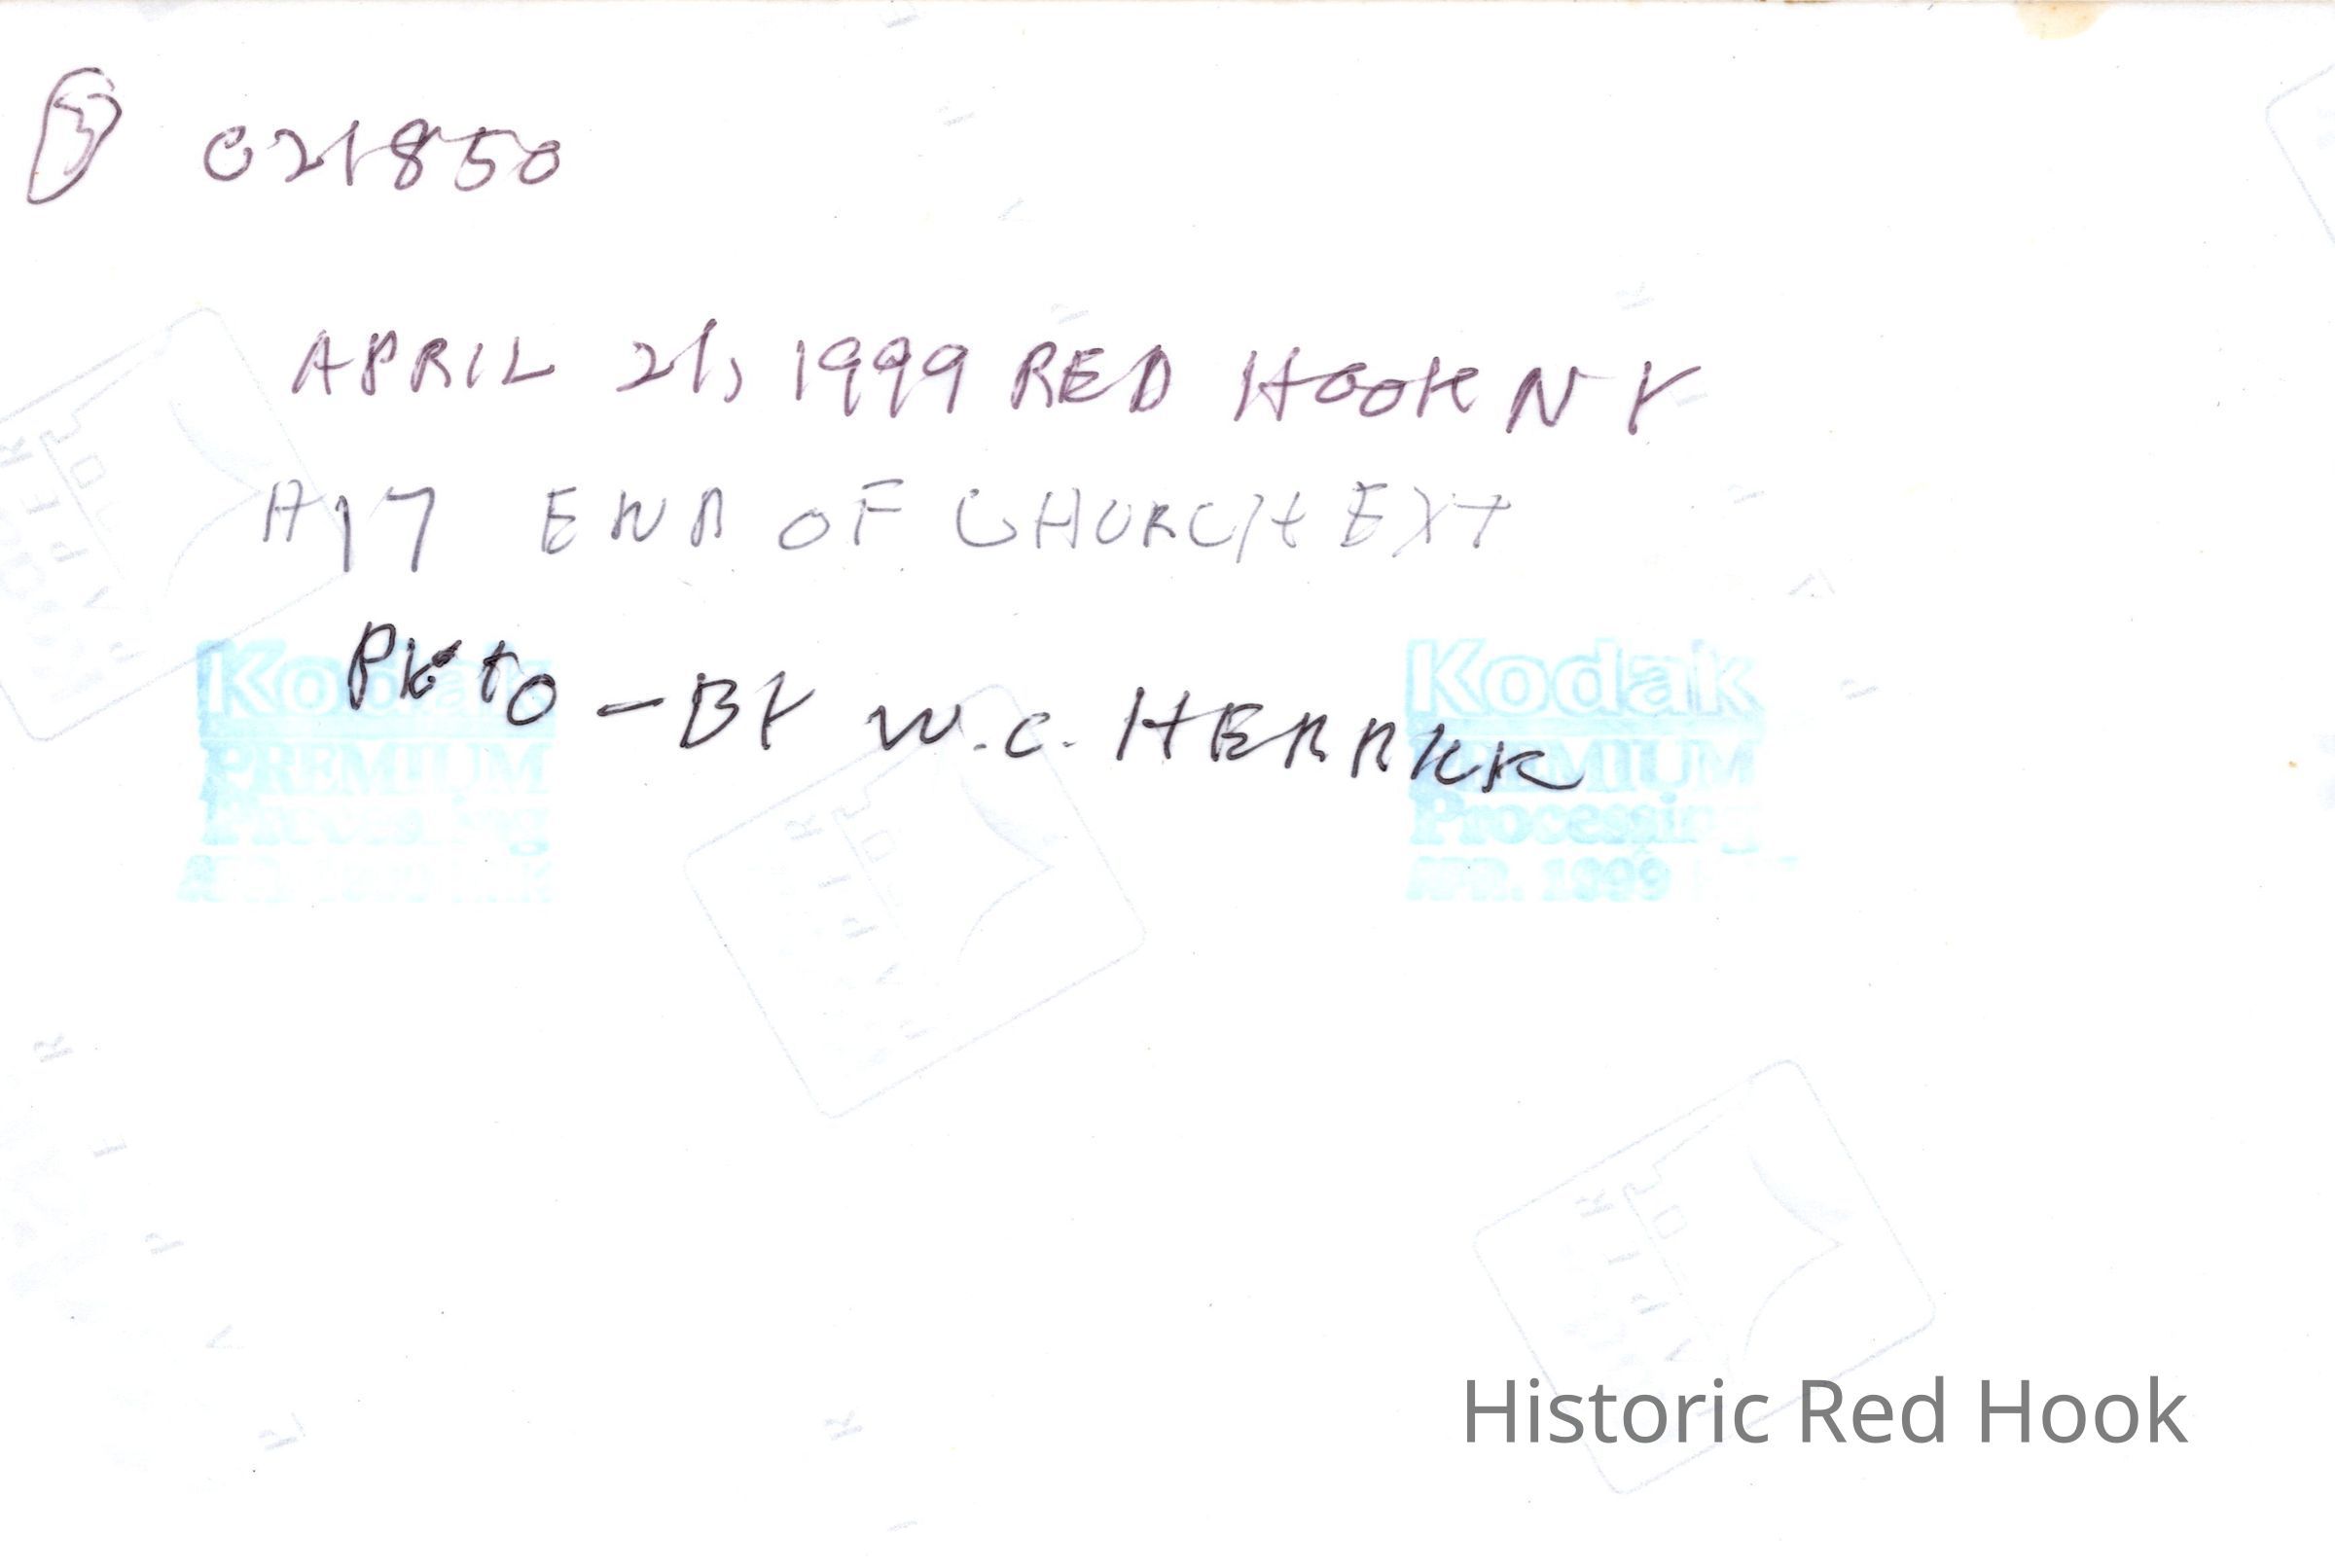 021850
APRIL 21, 1999 RED HOOK NY
A17 END OF CHURCH EXT
PHOTO - BY W.C. HERRICK
Kodak
PREMIUM
Processing
Kodak
PREMIUM
Processing
APR. 1999
Historic Red Hook